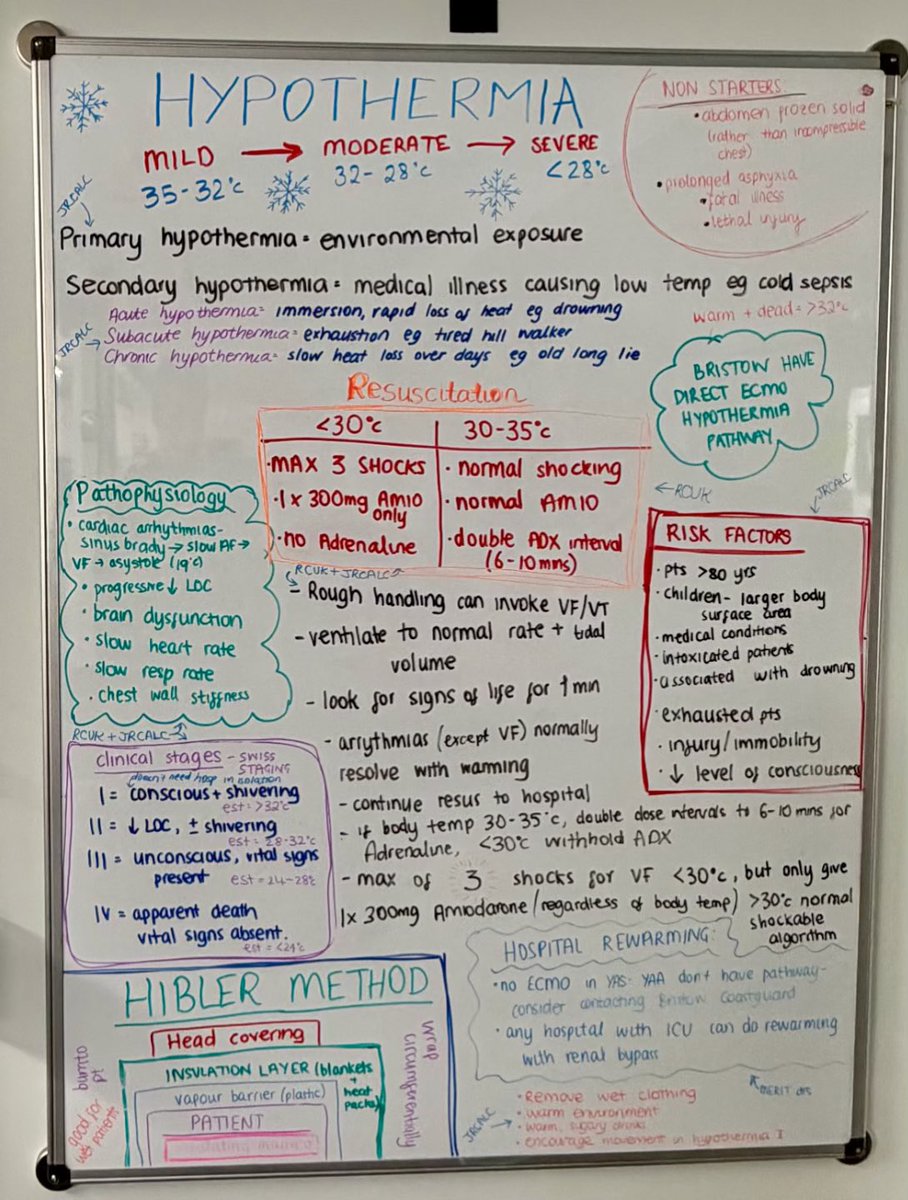 HYPOTHERMIA
MILD → MODERATE → SEVERE
35-32°c 32-28°c <28°c
NON STARTERS:
• abdomen frozen solid
(rather than incompressible
chest)
• prolonged asphyxia
• fatal illness
• lethal injury
JRCALC
Primary hypothermia = environmental exposure
Secondary hypothermia = medical illness causing low temp eg cold sepsis
Acute hypothermia = immersion, rapid loss of heat eg drowning
JRCALC → Subacute hypothermia = exhaustion eg tired hill walker
Chronic hypothermia = slow heat loss over days eg old long lie
warm + dead = >32°c
BRISTOW HAVE
DIRECT ECMO
HYPOTHERMIA
PATHWAY
Resuscitation
<30°c 30-35°c
• MAX 3 SHOCKS • normal shocking
• 1 x 300mg AMIO • normal AMIO
only
• no Adrenaline • double ADX interval
(6-10mns)
← RCUK
RCUK + JRCALC
Pathophysiology
• cardiac arrhythmias-
sinus brady → slow AF →
VF → asystole (19°c)
• progressive ↓ LOC
• brain dysfunction
• slow heart rate
• slow resp rate
• chest wall stiffness
JRCALC
RISK FACTORS
• pts >80 yrs
• children- larger body
surface area
• medical conditions
• intoxicated patients
• associated with drowning
• exhausted pts
• injury/immobility
• ↓ level of consciousness
- Rough handling can invoke VF/VT
- ventilate to normal rate + tidal
volume
- look for signs of life for 1 min
- arrythmias (except VF) normally
resolve with warming
- continue resus to hospital
- if body temp 30-35°c, double dose intervals to 6-10 mins for
Adrenaline, <30°c withhold ADX
- max of 3 shocks for VF <30°c, but only give
1x 300mg Amiodarone (regardless of body temp) >30°c normal
shockable
algorithm
RCUK + JRCALC
clinical stages - SWISS
STAGING
doesn't need hosp in isolation
I = conscious + shivering
est = >32°c
II = ↓ LOC, ± shivering
est = 28-32°c
III = unconscious, vital signs
present est = 24-28°c
IV = apparent death
vital signs absent.
est = <24°c
HOSPITAL REWARMING:
• no ECMO in YAS. YAA don't have pathway-
consider contacting Bristow Coastguard
• any hospital with ICU can do rewarming
with renal bypass
MERIT drs
HIBLER METHOD
Head covering
INSULATION LAYER (blankets
+ heat
packs)
vapour barrier (plastic)
PATIENT
wrap
circumferentially
pt
good for
wet patients
JRCALC →
• Remove wet clothing
• warm environment
• warm, sugary drinks
• encourage movement in hypothermia I